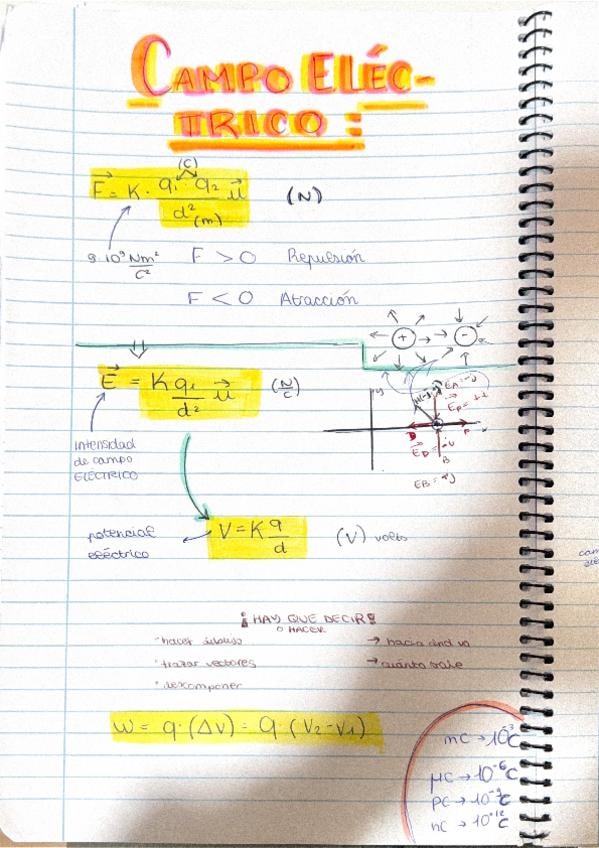 CAMPO ELÉC-
TRICO:
(C)
F⃗ = K · q₁ · q₂ / d² u⃗ (N)
(m)
9·10⁹ Nm²/C² F > 0 Repulsión
F < 0 Atracción
+ -
E⃗ = K q₁/d² u⃗ (N/C)
y
intensidad
de campo
ELÉCTRICO
B
V = K q/d (V) volts
potencial
eléctrico
¡HAY QUE DECIR!
O HACER
· hacer dibujo → hacia dnd va
· trazar vectores → cuánto vale
· descomponer
W = q · (ΔV) = q · (V₂ - V₁)
mC → 10⁻³C
μC → 10⁻⁶C
pC → 10⁻⁹C
nC → 10⁻¹²C